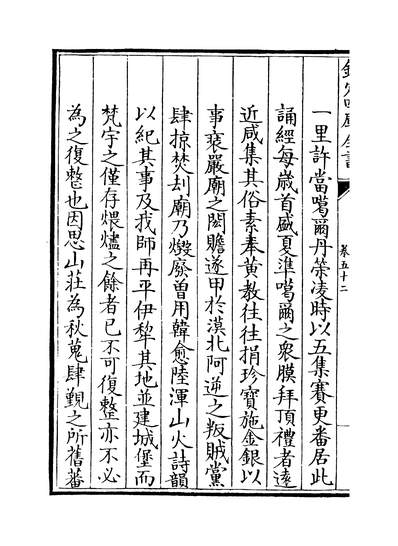 欽定四庫全書
卷五十二
一里許當噶爾丹策凌時以五集賽更番居此
誦經每歲首盛夏準噶爾之衆膜拜頂禮者遠
近咸集其俗素奉黃教往往捐珍寶施金銀以
事裒嚴廟之閎贍遂甲於漠北阿逆之叛賊黨
肆掠焚刦廟乃燬廢曽用韓愈陸渾山火詩韻
以紀其事及我師再平伊犂其地並建城堡而
梵宇之僅存煨燼之餘者已不可復整亦不必
為之復整也因思山莊為秋蒐肆覲之所舊蕃